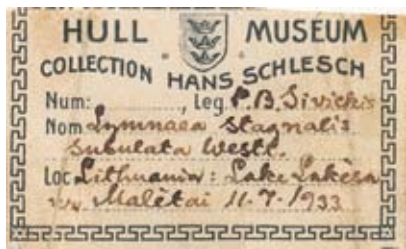 HULL MUSEUM
COLLECTION HANS SCHLESCH
Num: , Leg. P. B. Sivickis
Nom Lymnaea stagnalis
subulata Westl.
Loc Lithuania: Lake Lakėsa
nr. Malėtai 11-7-1933